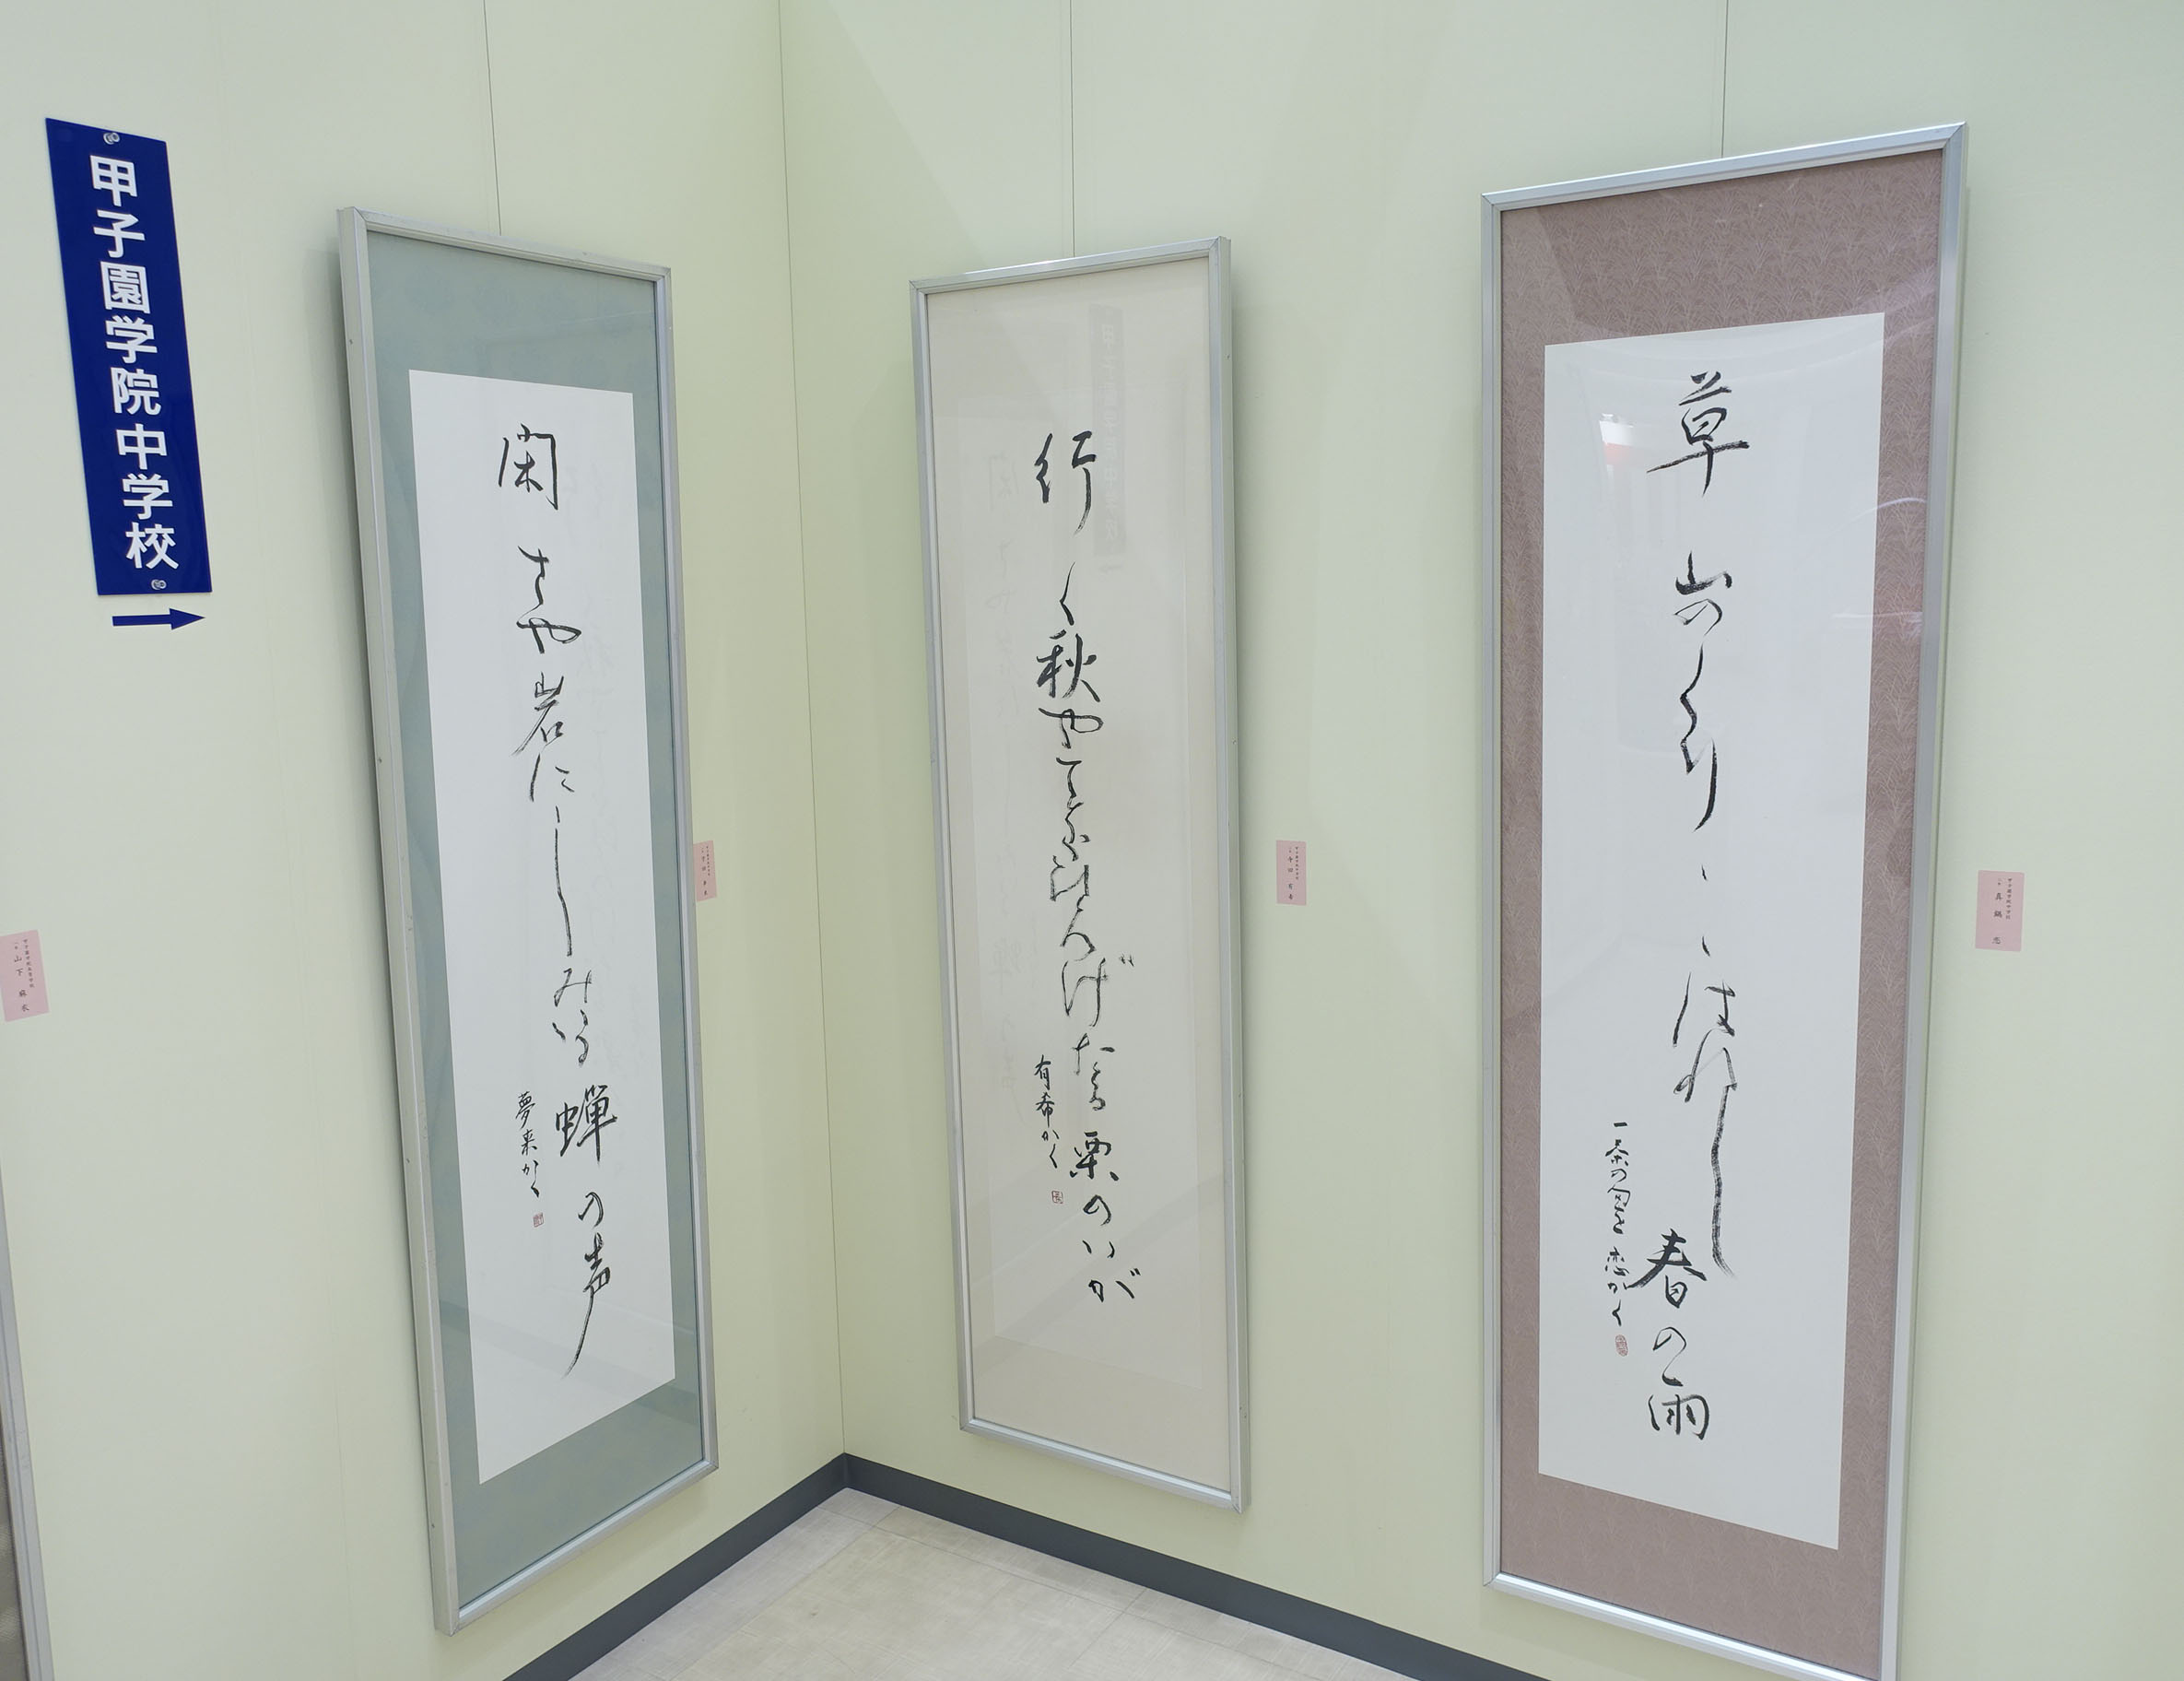 甲子園学院中学校
閑さや岩にしみいる蝉の声
夢来かく
行く秋やてをひろげたる栗のいが
有希かく
草山のくり、、はれし春の雨
一茶の句を 恋かく
山下 麻衣
甲子園学院中学校
真鍋 恋